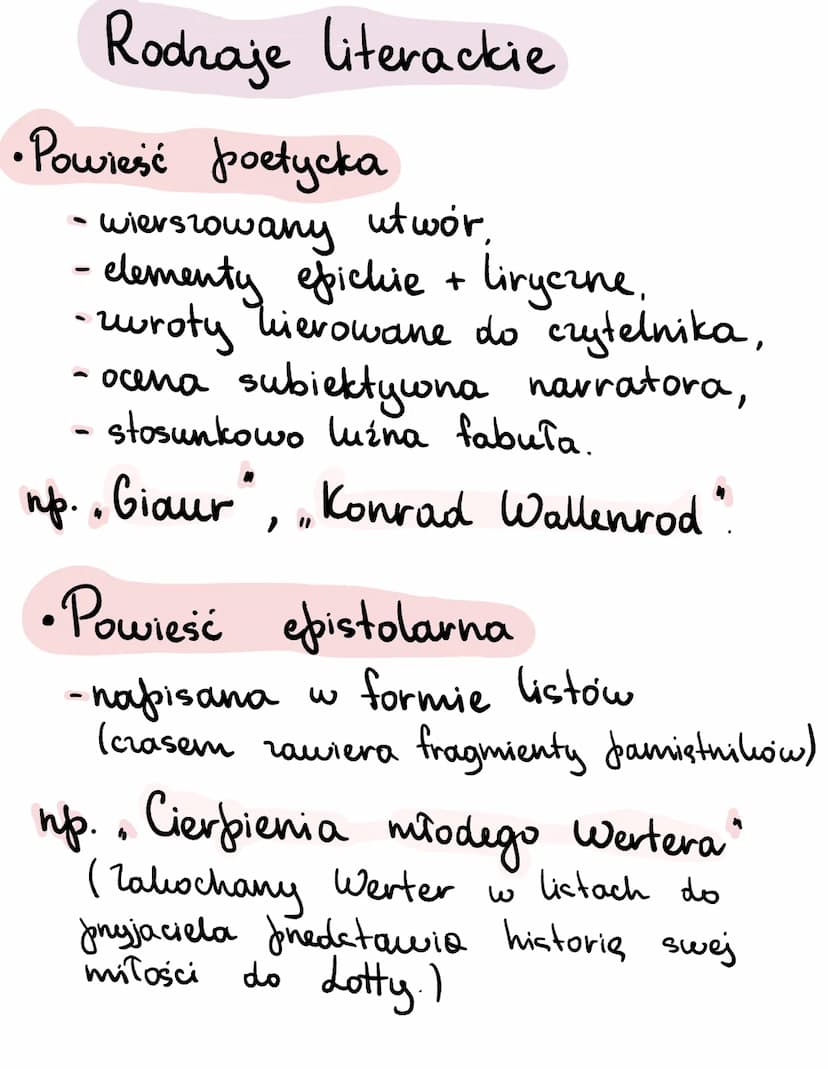 Rodzaje literackie
• Powieść poetycka
- wierszowany utwór,
- elementy epickie + liryczne,
- zwroty kierowane do czytelnika,
- ocena subiektywna narratora,
- stosunkowo luźna fabuła.
np. „Giaur”, „Konrad Wallenrod”.
• Powieść epistolarna
- napisana w formie listów
(czasem zawiera fragmienty pamiętników)
np. „Cierpienia młodego Wertera”
(Zakochany Werter w listach do
przyjaciela przedstawia historię swej
miłości do Lotty.)